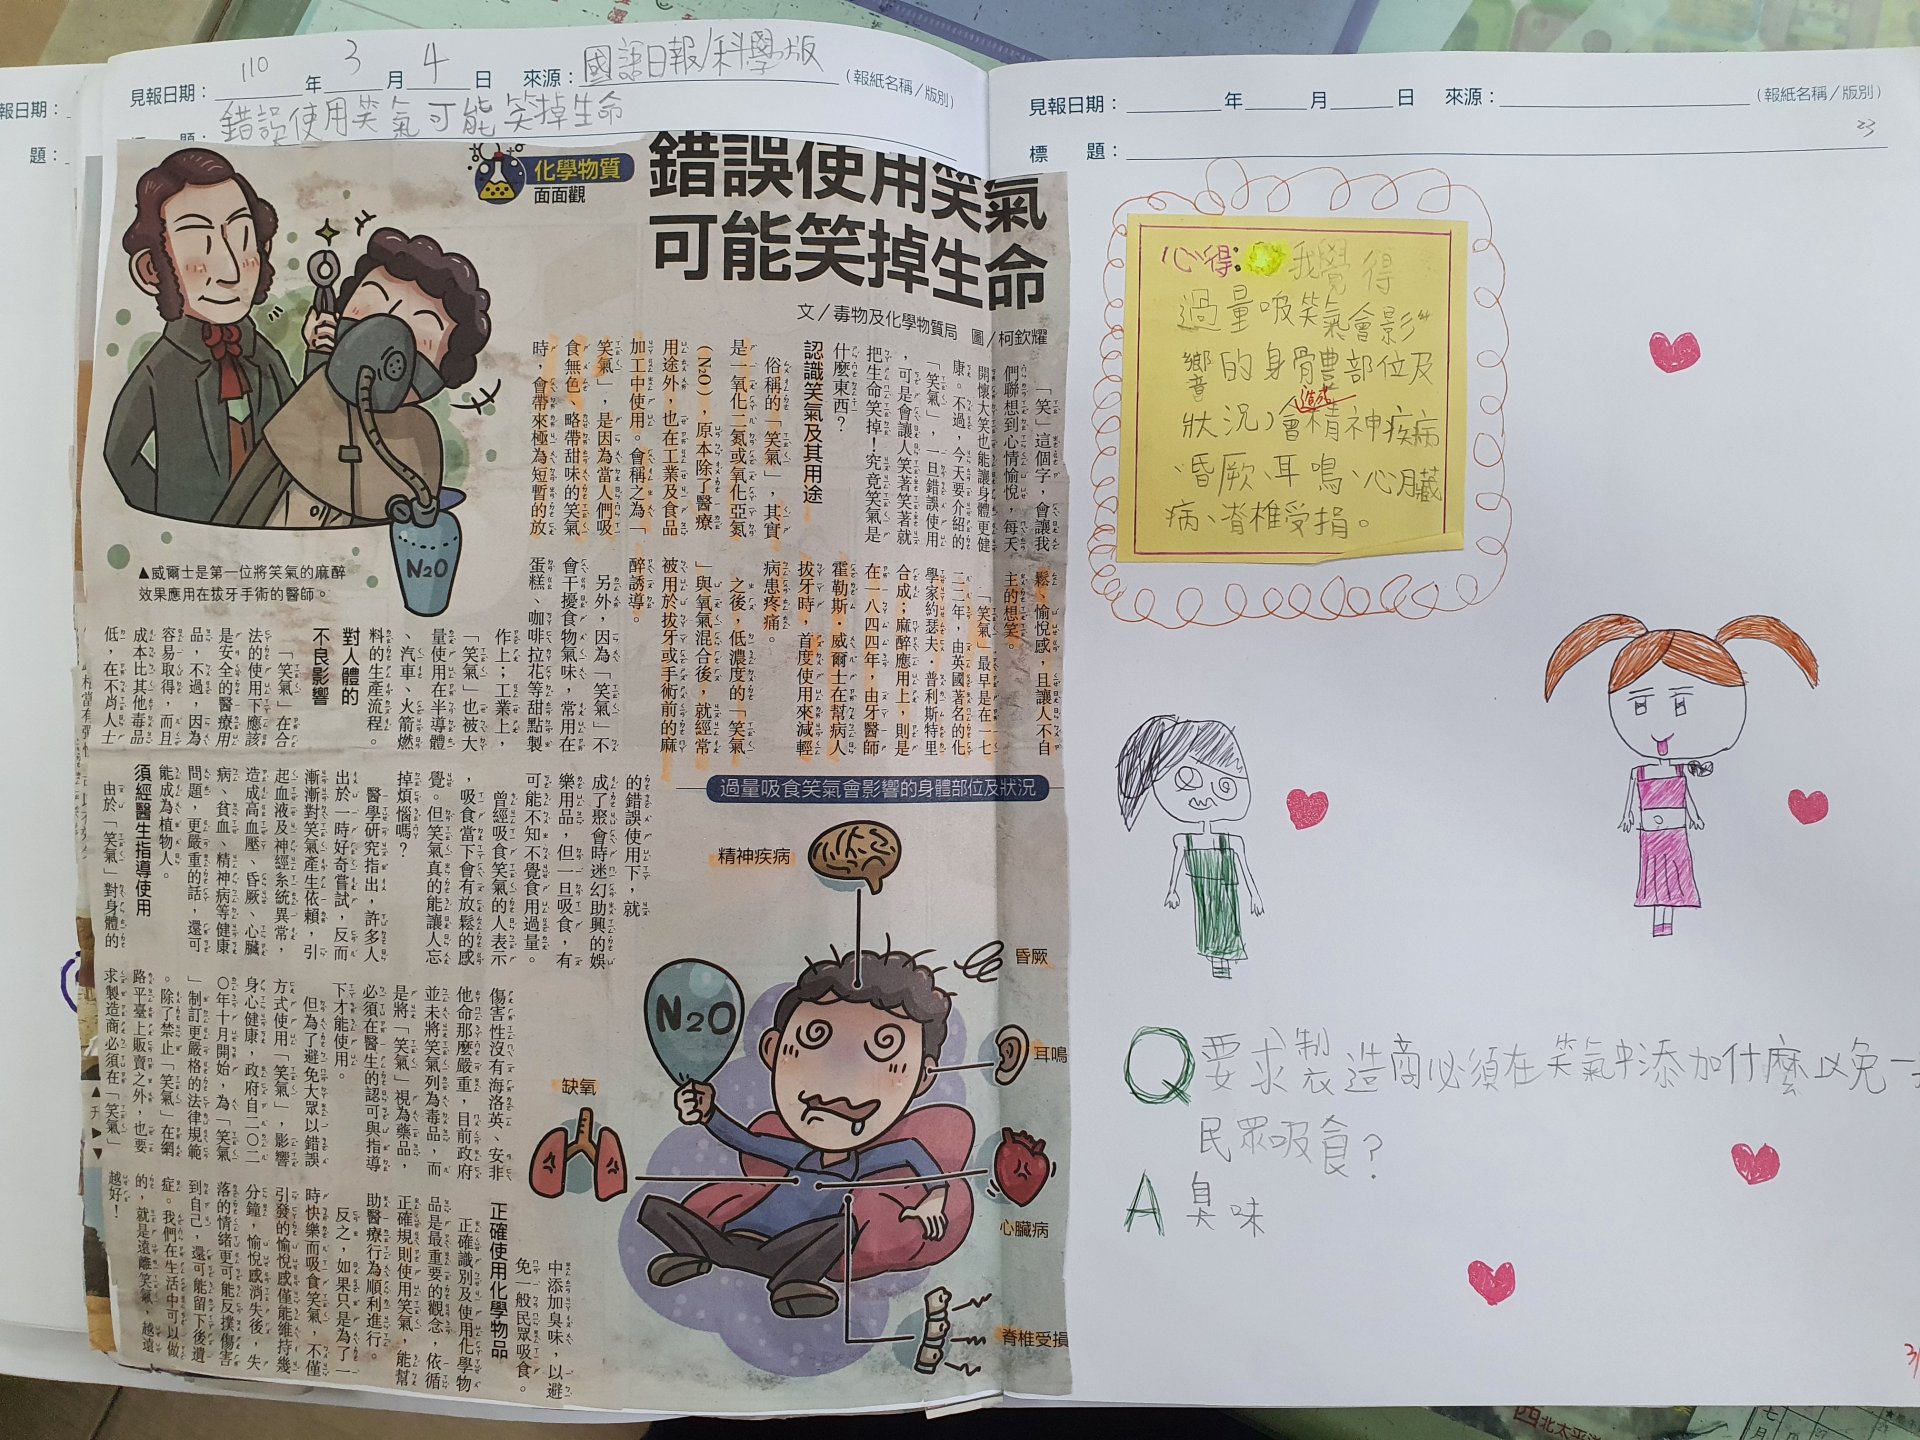 報日期：
題：
見報日期：110年3月4日 來源：國語日報/科學版（報紙名稱／版別）
題：錯誤使用笑氣可能笑掉生命
化學物質
面面觀
錯誤使用笑氣
可能笑掉生命
文／毒物及化學物質局 圖／柯欽耀
「笑」這個字，會讓我
們聯想到心情愉悅，每天
開懷大笑也能讓身體更健
康。不過，今天要介紹的
「笑氣」，一旦錯誤使用
，可是會讓人笑著笑著就
把生命笑掉！究竟笑氣是
什麼東西？
認識笑氣及其用途
俗稱的「笑氣」，其實
是一氧化二氮或氧化亞氮
（N₂O），原本除了醫療
用途外，也在工業及食品
加工中使用。會稱之為「
笑氣」，是因為當人們吸
食無色、略帶甜味的笑氣
時，會帶來極為短暫的放
鬆、愉悅感，且讓人不自
主的想笑。
「笑氣」最早是在一七
七二年，由英國著名的化
學家約瑟夫·普利斯特里
合成；麻醉應用上，則是
在一八四四年，由牙醫師
霍勒斯·威爾士在幫病人
拔牙時，首度使用來減輕
病患疼痛。
之後，低濃度的「笑氣
」與氧氣混合後，就經常
被用於拔牙或手術前的麻
醉誘導。
另外，因為「笑氣」不
會干擾食物氣味，常用在
蛋糕、咖啡拉花等甜點製
作上；工業上，
「笑氣」也被大
量使用在半導體
、汽車、火箭燃
料的生產流程。
對人體的
不良影響
「笑氣」在合
法的使用下應該
是安全的醫療用
品，不過，因為
容易取得，而且
成本比其他毒品
低，在不肖人士
的錯誤使用下，就
成了聚會時迷幻助興的娛
樂用品，但一旦吸食，有
可能不知不覺食用過量。
曾經吸食笑氣的人表示
，吸食當下會有放鬆的感
覺。但笑氣真的能讓人忘
掉煩惱嗎？
醫學研究指出，許多人
出於一時好奇嘗試，反而
漸漸對笑氣產生依賴，引
起血液及神經系統異常，
造成高血壓、昏厥、心臟
病、貧血、精神病等健康
問題，更嚴重的話，還可
能成為植物人。
須經醫生指導使用
由於「笑氣」對身體的
傷害性沒有海洛英、安非
他命那麼嚴重，目前政府
並未將笑氣列為毒品，而
是將「笑氣」視為藥品，
必須在醫生的認可與指導
下才能使用。
但為了避免大眾以錯誤
方式使用「笑氣」，影響
身心健康，政府自二〇二
〇年十月開始，為「笑氣
」制訂更嚴格的法律規範
。除了禁止「笑氣」在網
路平臺上販賣之外，也要
求製造商必須在「笑氣」
中添加臭味，以避
免一般民眾吸食。
正確使用化學物品
正確識別及使用化學物
品是最重要的觀念，依循
正確規則使用笑氣，能幫
助醫療行為順利進行。
反之，如果只是為了一
時快樂而吸食笑氣，不僅
引發的愉悅感僅能維持幾
分鐘，愉悅感消失後，失
落的情緒更可能反撲傷害
到自己，還可能留下後遺
症。我們在生活中可以做
的，就是遠離笑氣，越遠
越好！
N₂O
▲威爾士是第一位將笑氣的麻醉
效果應用在拔牙手術的醫師。
過量吸食笑氣會影響的身體部位及狀況
精神疾病
昏厥
N₂O
耳鳴
缺氧
心臟病
脊椎受損
見報日期：年月日 來源：（報紙名稱／版別）
23
標題：
心得：我覺得
過量吸笑氣會影
響的身體部位及
狀況，會造成精神疾病
、昏厥、耳鳴、心臟
病、脊椎受損。
Q要求製造商必須在笑氣中添加什麼以免一
民眾吸食？
A 臭味
3/
西北太平洋
七月